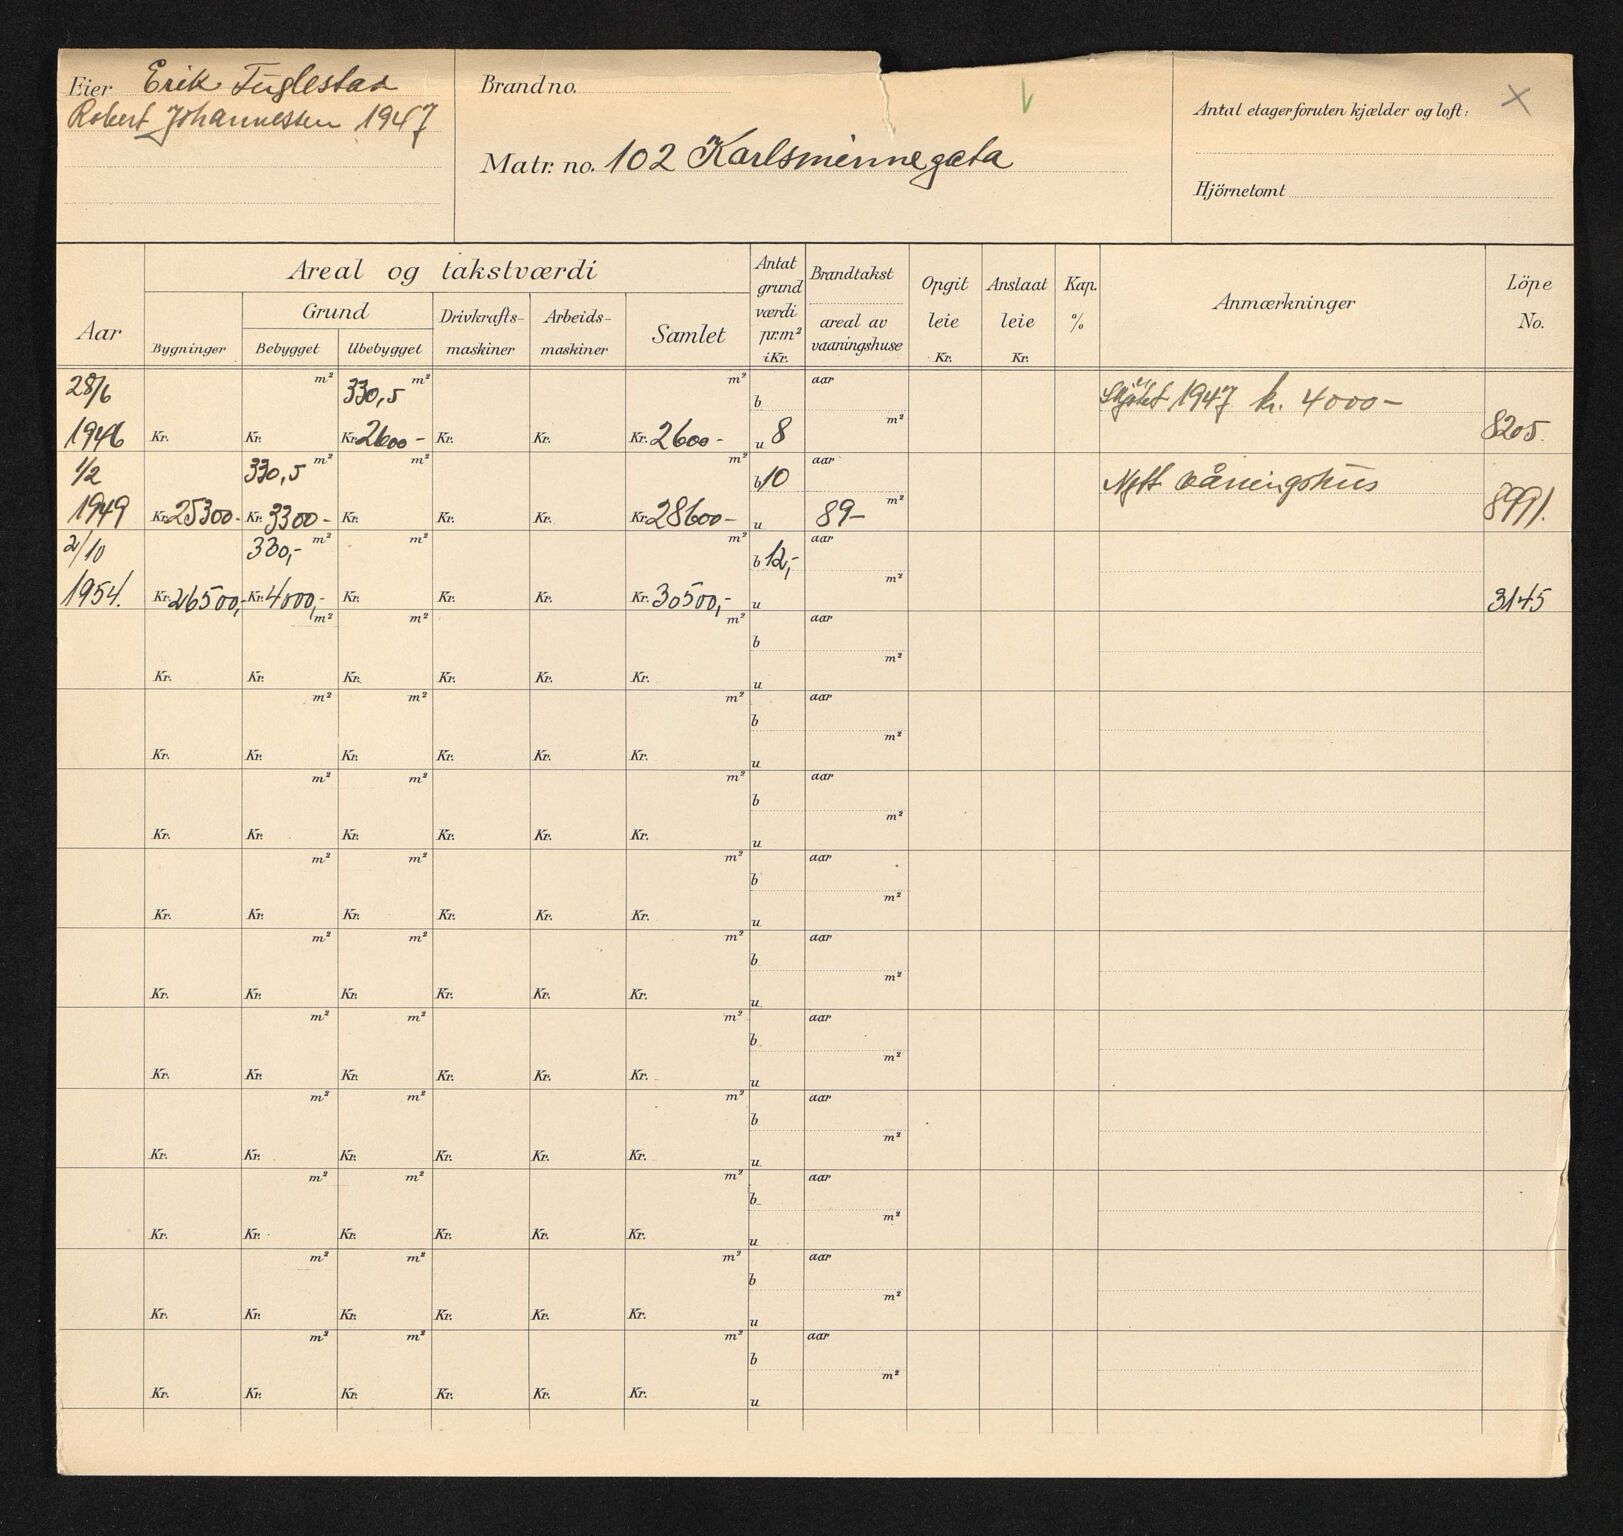 Eier Erik Fuglestad
Robert Johannessen 1947
Brand no.
Matr. no. 102 Karlsminnegata
Antal etager foruten kjælder og loft:
Hjörnetomt
Aar
Areal og takstværdi
Bygninger
Grund
Bebygget
Ubebygget
Drivkrafts-
maskiner
Arbeids-
maskiner
Samlet
Antat
grund
værdi
pr. m²
i Kr.
Brandtakst
areal av
vaaningshuse
Opgit
leie
Kr.
Anslaat
leie
Kr.
Kap.
%
Anmærkninger
Löpe
No.
28/6 m² 330,5 m² m² b aar Skjötet 1947 kr. 4000-
1946 Kr. Kr. Kr. 2600- Kr. Kr. Kr. 2600- u 8 m² 8205.
1/2 330,5 m² m² m² b 10 aar Nytt våningshus
1949 Kr. 25300- Kr. 3300- Kr. Kr. Kr. Kr. 28600- u 89- m² 8991.
2/10 330,- m² m² m² b 12,- aar
1954. Kr. 26500,- Kr. 4000,- Kr. Kr. Kr. Kr. 30500,- u m² 3145
m² m² m² b aar
Kr. Kr. Kr. Kr. Kr. Kr. u m²
m² m² m² b aar
Kr. Kr. Kr. Kr. Kr. Kr. u m²
m² m² m² b aar
Kr. Kr. Kr. Kr. Kr. Kr. u m²
m² m² m² b aar
Kr. Kr. Kr. Kr. Kr. Kr. u m²
m² m² m² b aar
Kr. Kr. Kr. Kr. Kr. Kr. u m²
m² m² m² b aar
Kr. Kr. Kr. Kr. Kr. Kr. u m²
m² m² m² b aar
Kr. Kr. Kr. Kr. Kr. Kr. u m²
m² m² m² b aar
Kr. Kr. Kr. Kr. Kr. Kr. u m²
m² m² m² b aar
Kr. Kr. Kr. Kr. Kr. Kr. u m²
m² m² m² b aar
Kr. Kr. Kr. Kr. Kr. Kr. u m²